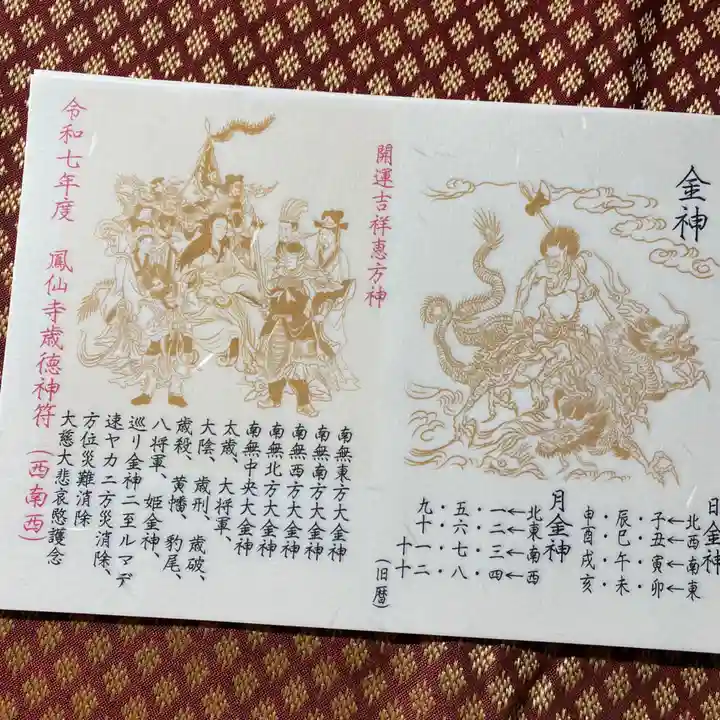 金神
日金神
東←卯・未・亥
南←寅・午・戌
西←丑・巳・酉
北←子・辰・申
月金神
西←四・八・十二
南←三・七・十一
東←二・六・十
北←一・五・九
(旧暦)
開運吉祥惠方神
南無東方大金神
南無南方大金神
南無西方大金神
南無北方大金神
南無中央大金神
太歳、大将軍、
大陰、歳刑、歳破、
歳殺、黄幡、豹尾、
八将軍、姫金神、
巡リ金神ニ至ルマデ
速ヤカニ方災消除、
方位災難消除
大慈大悲哀愍護念
令和七年度 鳳仙寺歳徳神符(西南西)